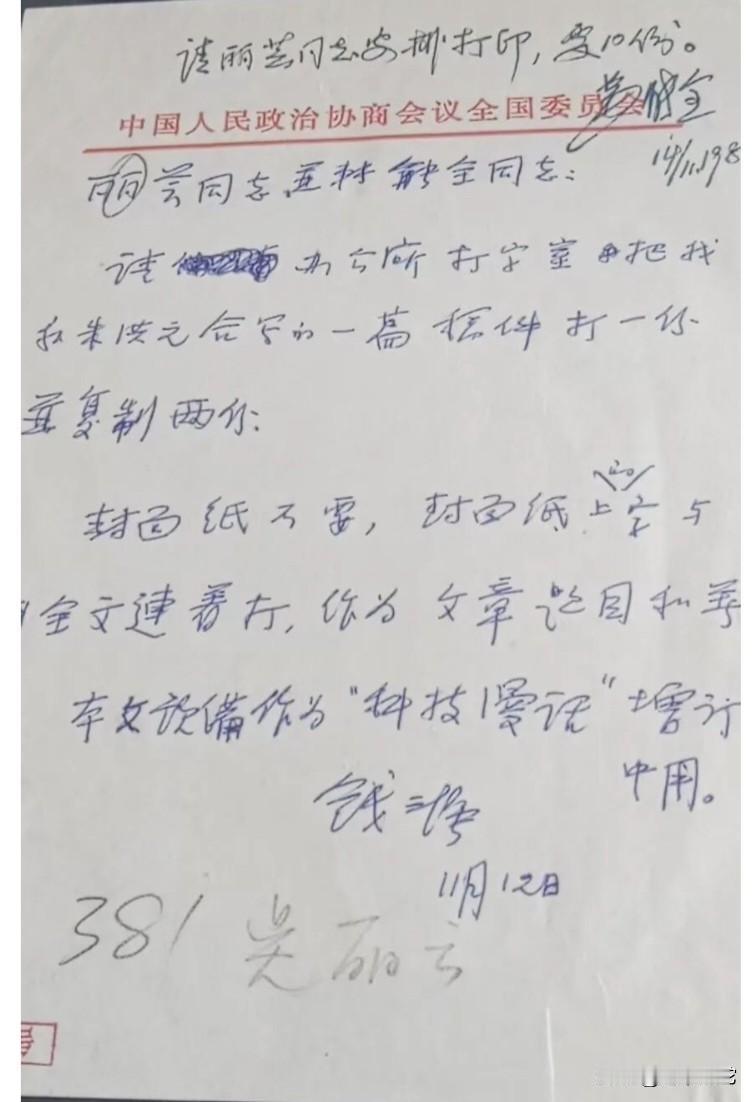 请丽芸同志安排打印，要10份。
中国人民政治协商会议全国委员会
14/11.198
丽芸同志并林 全同志：
请 办公厅打字室 把我
和朱洪元合写的一篇稿件打一份
并复制两份。
封面纸不要，封面纸上的字与
全文連着打，作为文章题目和
本文预備作为“科技漫话”增订
中用。
钱三强
11月12日
381 吴丽云